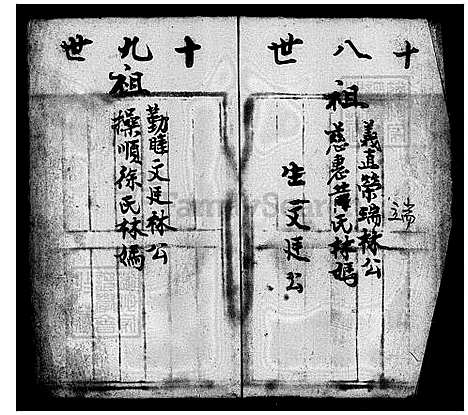 十八世
祖
義直榮瑞林公
慈惠黃氏林媽
生一文廷公
端
十九世
祖
勤睦文廷林公
操順徐氏林媽
FamilySearch